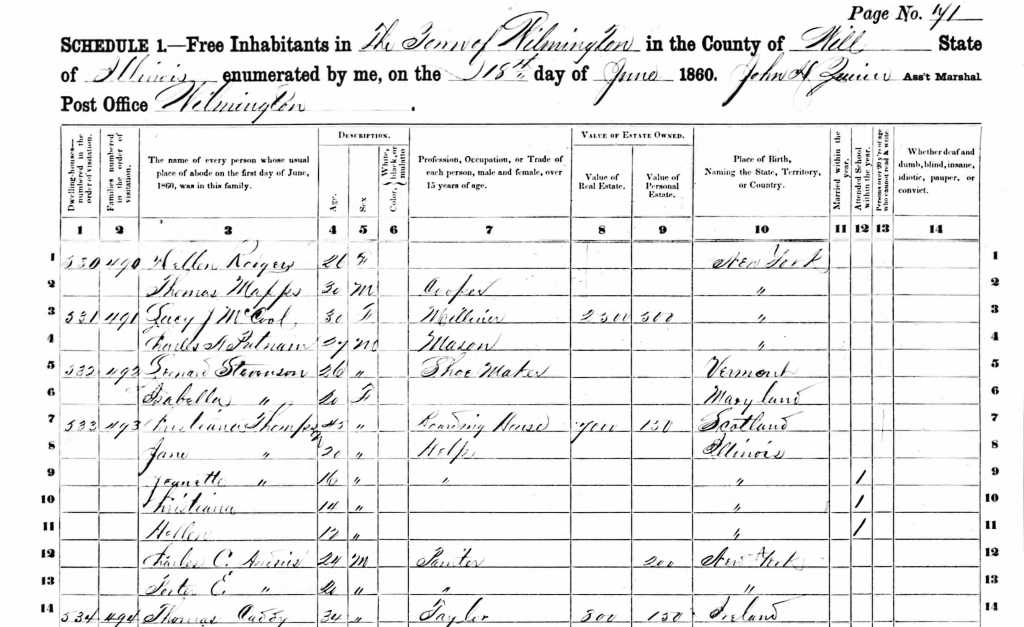 Page No. 71
SCHEDULE 1.—Free Inhabitants in The Town of Wilmington in the County of Will State
of Illinois enumerated by me, on the 18th day of June 1860. John H. Ass't Marshal
Post Office Wilmington .
Dwelling-houses—numbered in the order of visitation. Families numbered in the order of visitation. The name of every person whose usual place of abode on the first day of June, 1860, was in this family. DESCRIPTION. Age. Sex. Color, White, black, or mulatto Profession, Occupation, or Trade of each person, male and female, over 15 years of age. VALUE OF ESTATE OWNED. Value of Real Estate. Value of Personal Estate. Place of Birth, Naming the State, Territory, or Country. Married within the year. Attended School within the year. Persons over 20 y'rs of age who cannot read & write. Whether deaf and dumb, blind, insane, idiotic, pauper, or convict.
1 2 3 4 5 6 7 8 9 10 11 12 13 14
1 530 490 Hellen 26 F New York 1
2 Thomas Mapps 30 M Cooper " 2
3 531 491 Lucy J McCool 30 F Milliner 2300 300 " 3
4 Charles A Putnam 27 M Mason " 4
5 532 492 Leonard Stevenson 26 " Shoe Maker Vermont 5
6 Isabella " 20 F Maryland 6
7 533 493 Kristiana Thompson 45 " Boarding House 7000 150 Scotland 7
8 Jane " 20 " Help Illinois 8
9 Jeanette " 16 " " " 1 9
10 Kristiana 14 " " 1 10
11 Hellen 12 " " 1 11
12 Charles C. 24 M Painter 200 New York 12
13 E. " " " 13
14 534 494 Thomas Caddy 34 " Tayler 300 150 Ireland 14